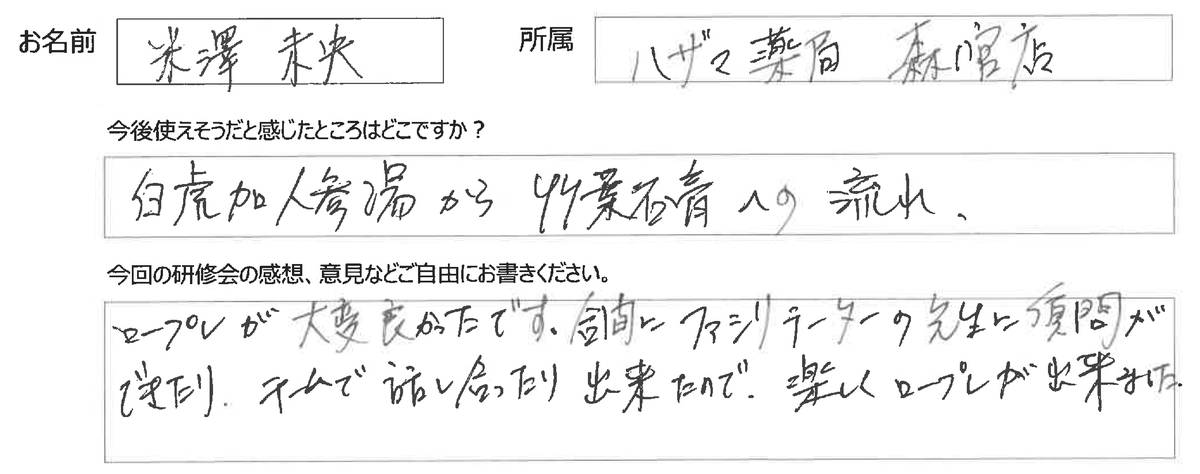 お名前 米澤 未央 所属 ハザマ薬局 森ノ宮店
今後使えそうだと感じたところはどこですか？
白虎加人参湯から 竹葉石膏への 流れ、
今回の研修会の感想、意見などご自由にお書きください。
ロープレが 大変良かったです。合間に ファシリテーターの先生に質問が
できたり、チームで 話し合ったり 出来たので、楽しくロープレが出来ました。